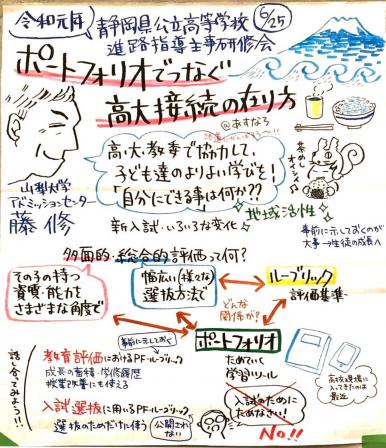 令和元年
静岡県公立高等学校
進路指導主事研修会
6/25
ポートフォリオでつなぐ
高大接続の在り方
@あすなろ
高・大・教委で協力して、
子ども達のよりよい学びを!
「自分にできる事は何か??
山梨大学
アドミッションセンター
藤 修
新入試・いろいろな変化
地域活性
事前に示しておくのが
大事→生徒の成長へ
多面的・総合的評価って何?
その子の持つ
資質・能力を
さまざまな角度で
幅広い(様々な)
選抜方法で
ルーブリック
評価基準
どんな
関係が?
ポートフォリオ
ためていく
学習ツール
話し合ってみよう!!
事前に示しておく
教育評価におけるPF・ルーブリック
成長の蓄積・学修履歴
授業改善にも使える
入試選抜に用いるPF・ルーブリック
選抜のためだけに使う
公開されない
入試のために
ためなさい!
No!!
高校現場に
入ってきたのは
最近